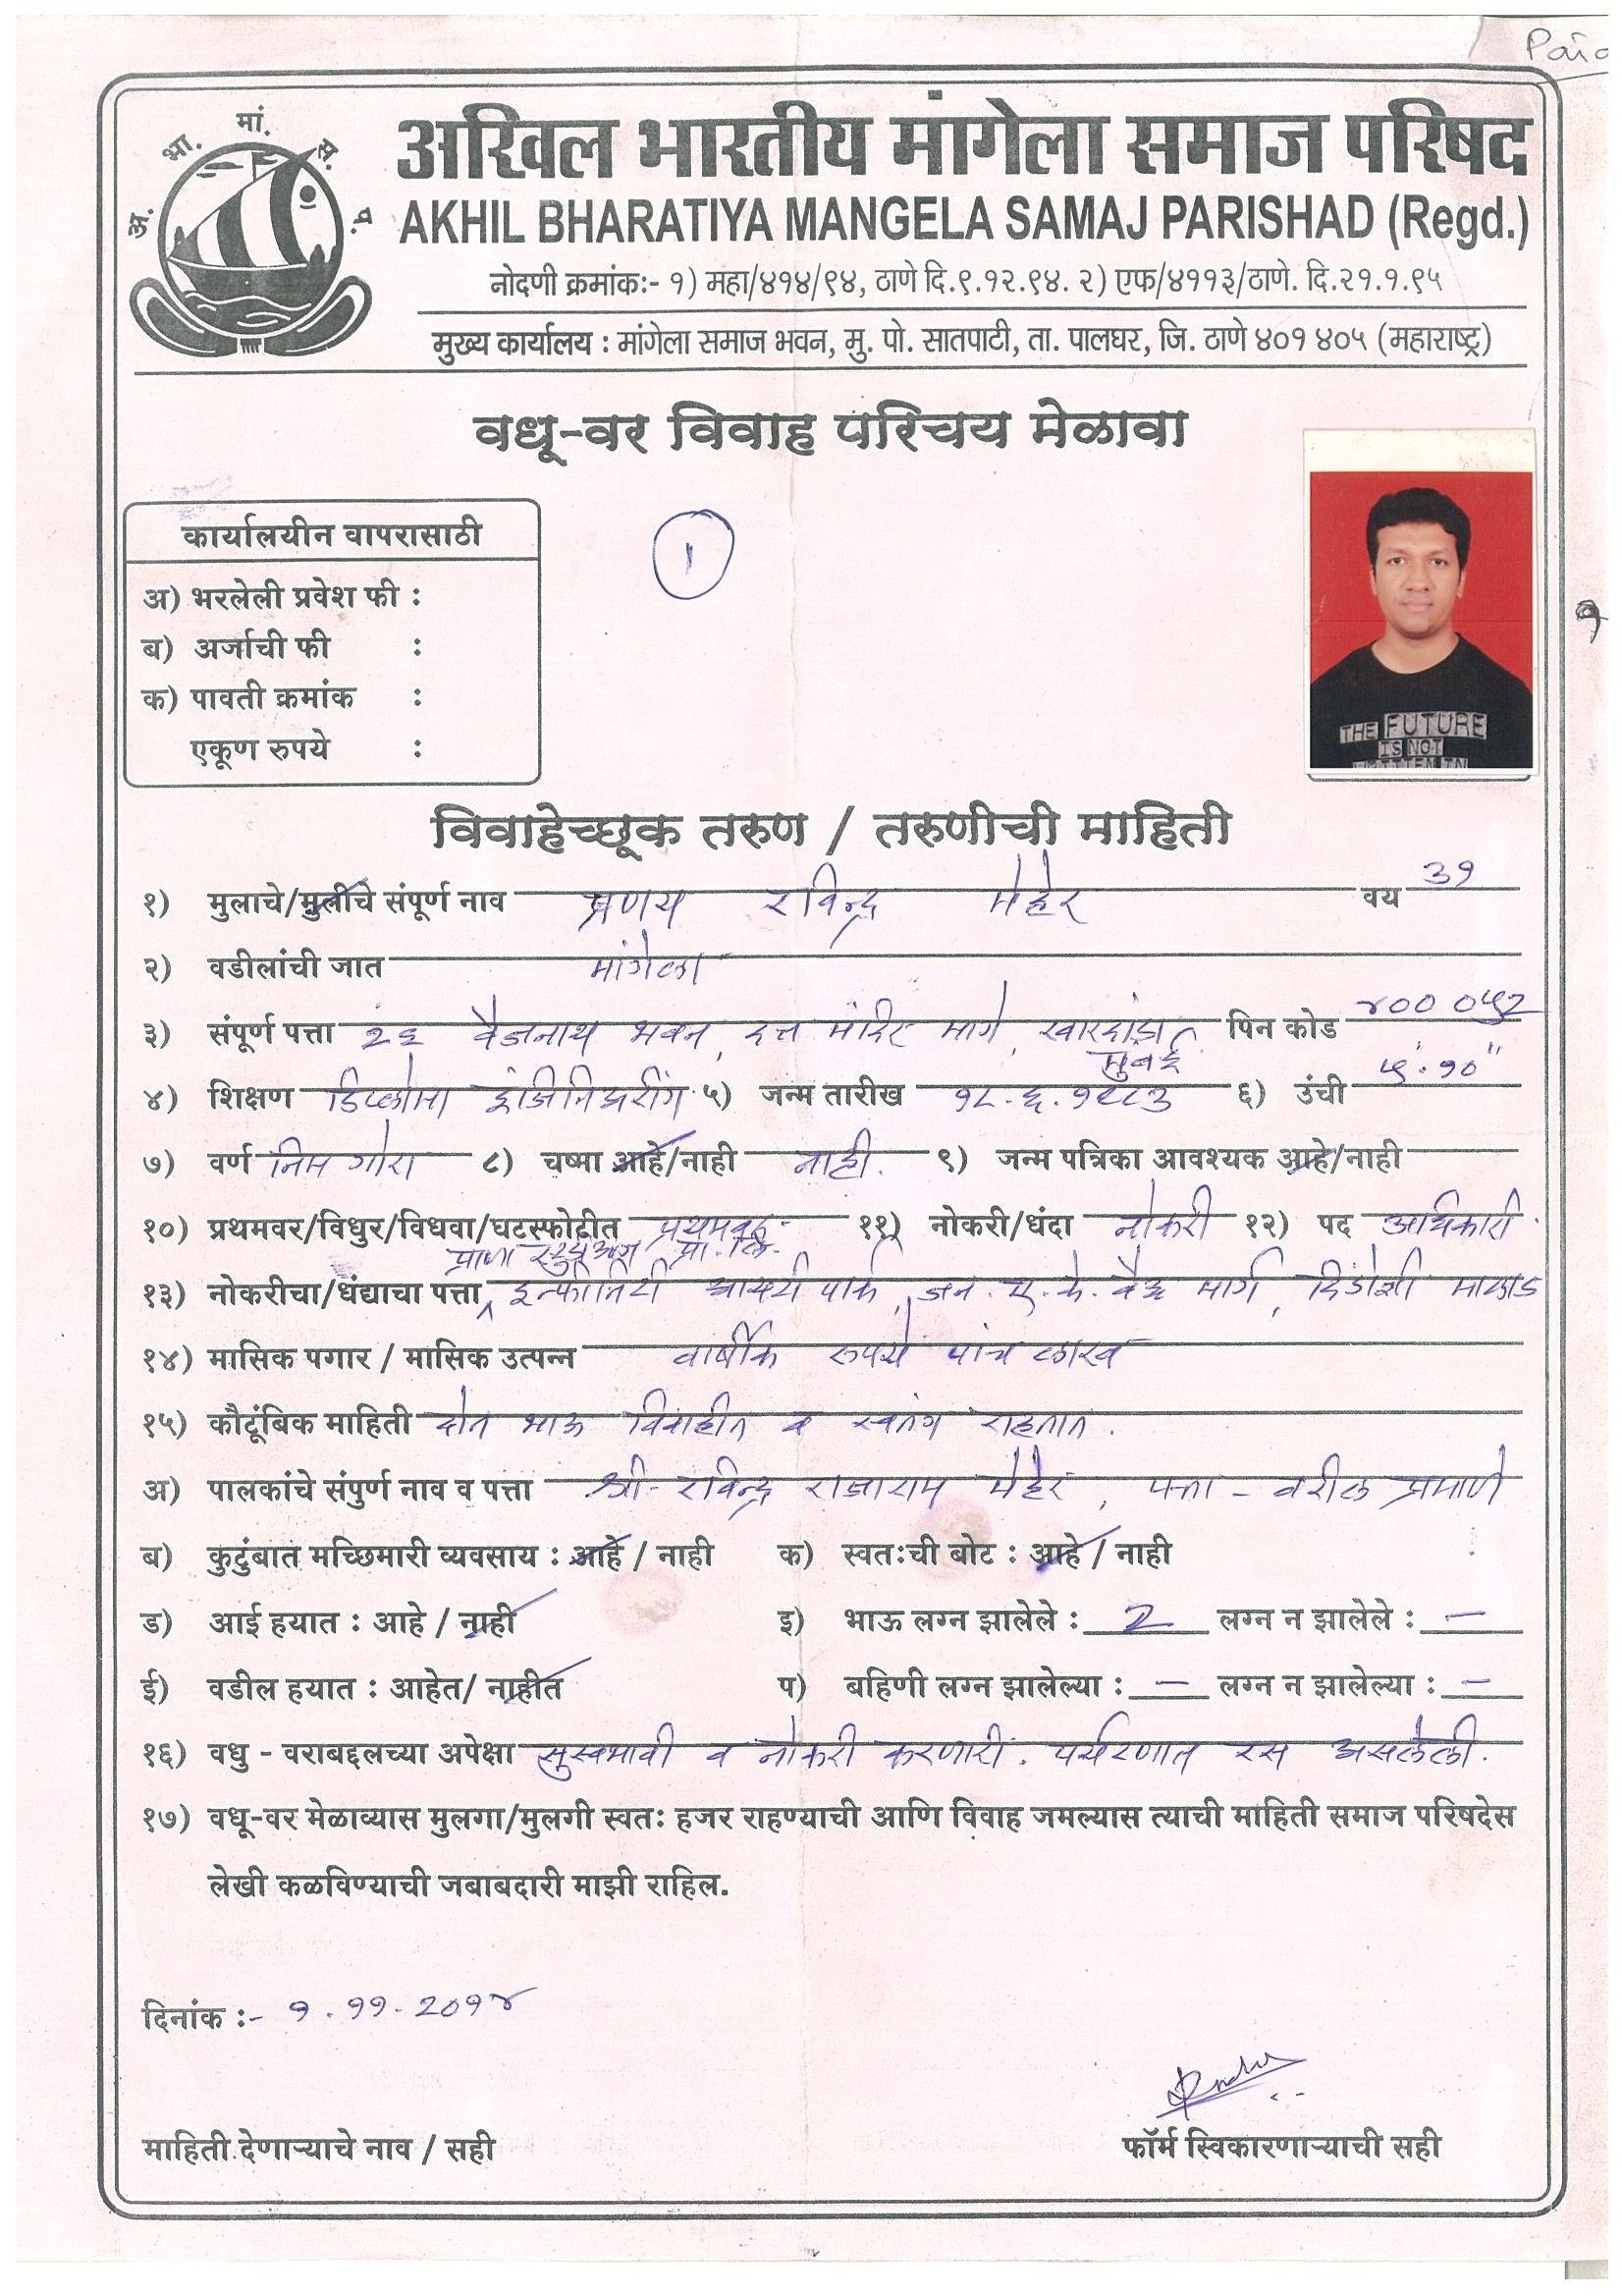 Paid
अ. भा. मां. स. प.
अखिल भारतीय मांगेला समाज परिषद
AKHIL BHARATIYA MANGELA SAMAJ PARISHAD (Regd.)
नोदणी क्रमांकः- १) महा/४१४/९४, ठाणे दि.९.१२.९४. २) एफ/४११३/ठाणे. दि.२१.१.९५
मुख्य कार्यालय : मांगेला समाज भवन, मु. पो. सातपाटी, ता. पालघर, जि. ठाणे ४०१ ४०५ (महाराष्ट्र)
वधू-वर विवाह परिचय मेळावा
कार्यालयीन वापरासाठी
अ) भरलेली प्रवेश फी :
ब) अर्जाची फी :
क) पावती क्रमांक :
एकूण रुपये :
1
THE FUTURE
IS NOT
WRITTEN IN
१
विवाहेच्छूक तरुण / तरुणीची माहिती
१) मुलाचे/मुलीचे संपूर्ण नाव प्रणय रविन्द्र मेहेर वय ३१
२) वडीलांची जात मांगेला
३) संपूर्ण पत्ता २६ वैजनाथ भवन, दत्त मंदिर मार्ग, खारदांडा मुंबई पिन कोड ४०० ०५२
४) शिक्षण डिप्लोमा इंजिनिअरींग ५) जन्म तारीख १८.६.१९८३ ६) उंची ५'.१०"
७) वर्ण निम गोरा ८) चष्मा आहे/नाही नाही. ९) जन्म पत्रिका आवश्यक आहे/नाही
१०) प्रथमवर/विधुर/विधवा/घटस्फोटीत प्रथमवर ११) नोकरी/धंदा नोकरी १२) पद अधिकारी
प्राणा प्रा. लि.
१३) नोकरीचा/धंद्याचा पत्ता इन्फीनिटी आयटी पार्क, जन. ए. के. वैद्य मार्ग, दिंडोशी मालाड
१४) मासिक पगार / मासिक उत्पन्न वार्षीक रुपये पांच लाख
१५) कौटूंबिक माहिती दोन भाऊ विवाहीत व स्वतंत्र राहतात.
अ) पालकांचे संपुर्ण नाव व पत्ता श्री. रविन्द्र राजाराम मेहेर, पत्ता - वरील प्रमाणे
ब) कुटुंबात मच्छिमारी व्यवसाय : आहे / नाही क) स्वतःची बोट : आहे / नाही
ड) आई हयात : आहे / नाही इ) भाऊ लग्न झालेले : 2 लग्न न झालेले : —
ई) वडील हयात : आहेत/ नाहीत प) बहिणी लग्न झालेल्या : — लग्न न झालेल्या : —
१६) वधु - वराबद्दलच्या अपेक्षा सुस्वभावी व नोकरी करणारी. पर्यटणात रस असलेली.
१७) वधू-वर मेळाव्यास मुलगा/मुलगी स्वतः हजर राहण्याची आणि विवाह जमल्यास त्याची माहिती समाज परिषदेस
लेखी कळविण्याची जबाबदारी माझी राहिल.
दिनांक :- १.११.२०१४
माहिती देणाऱ्याचे नाव / सही फॉर्म स्विकारणाऱ्याची सही